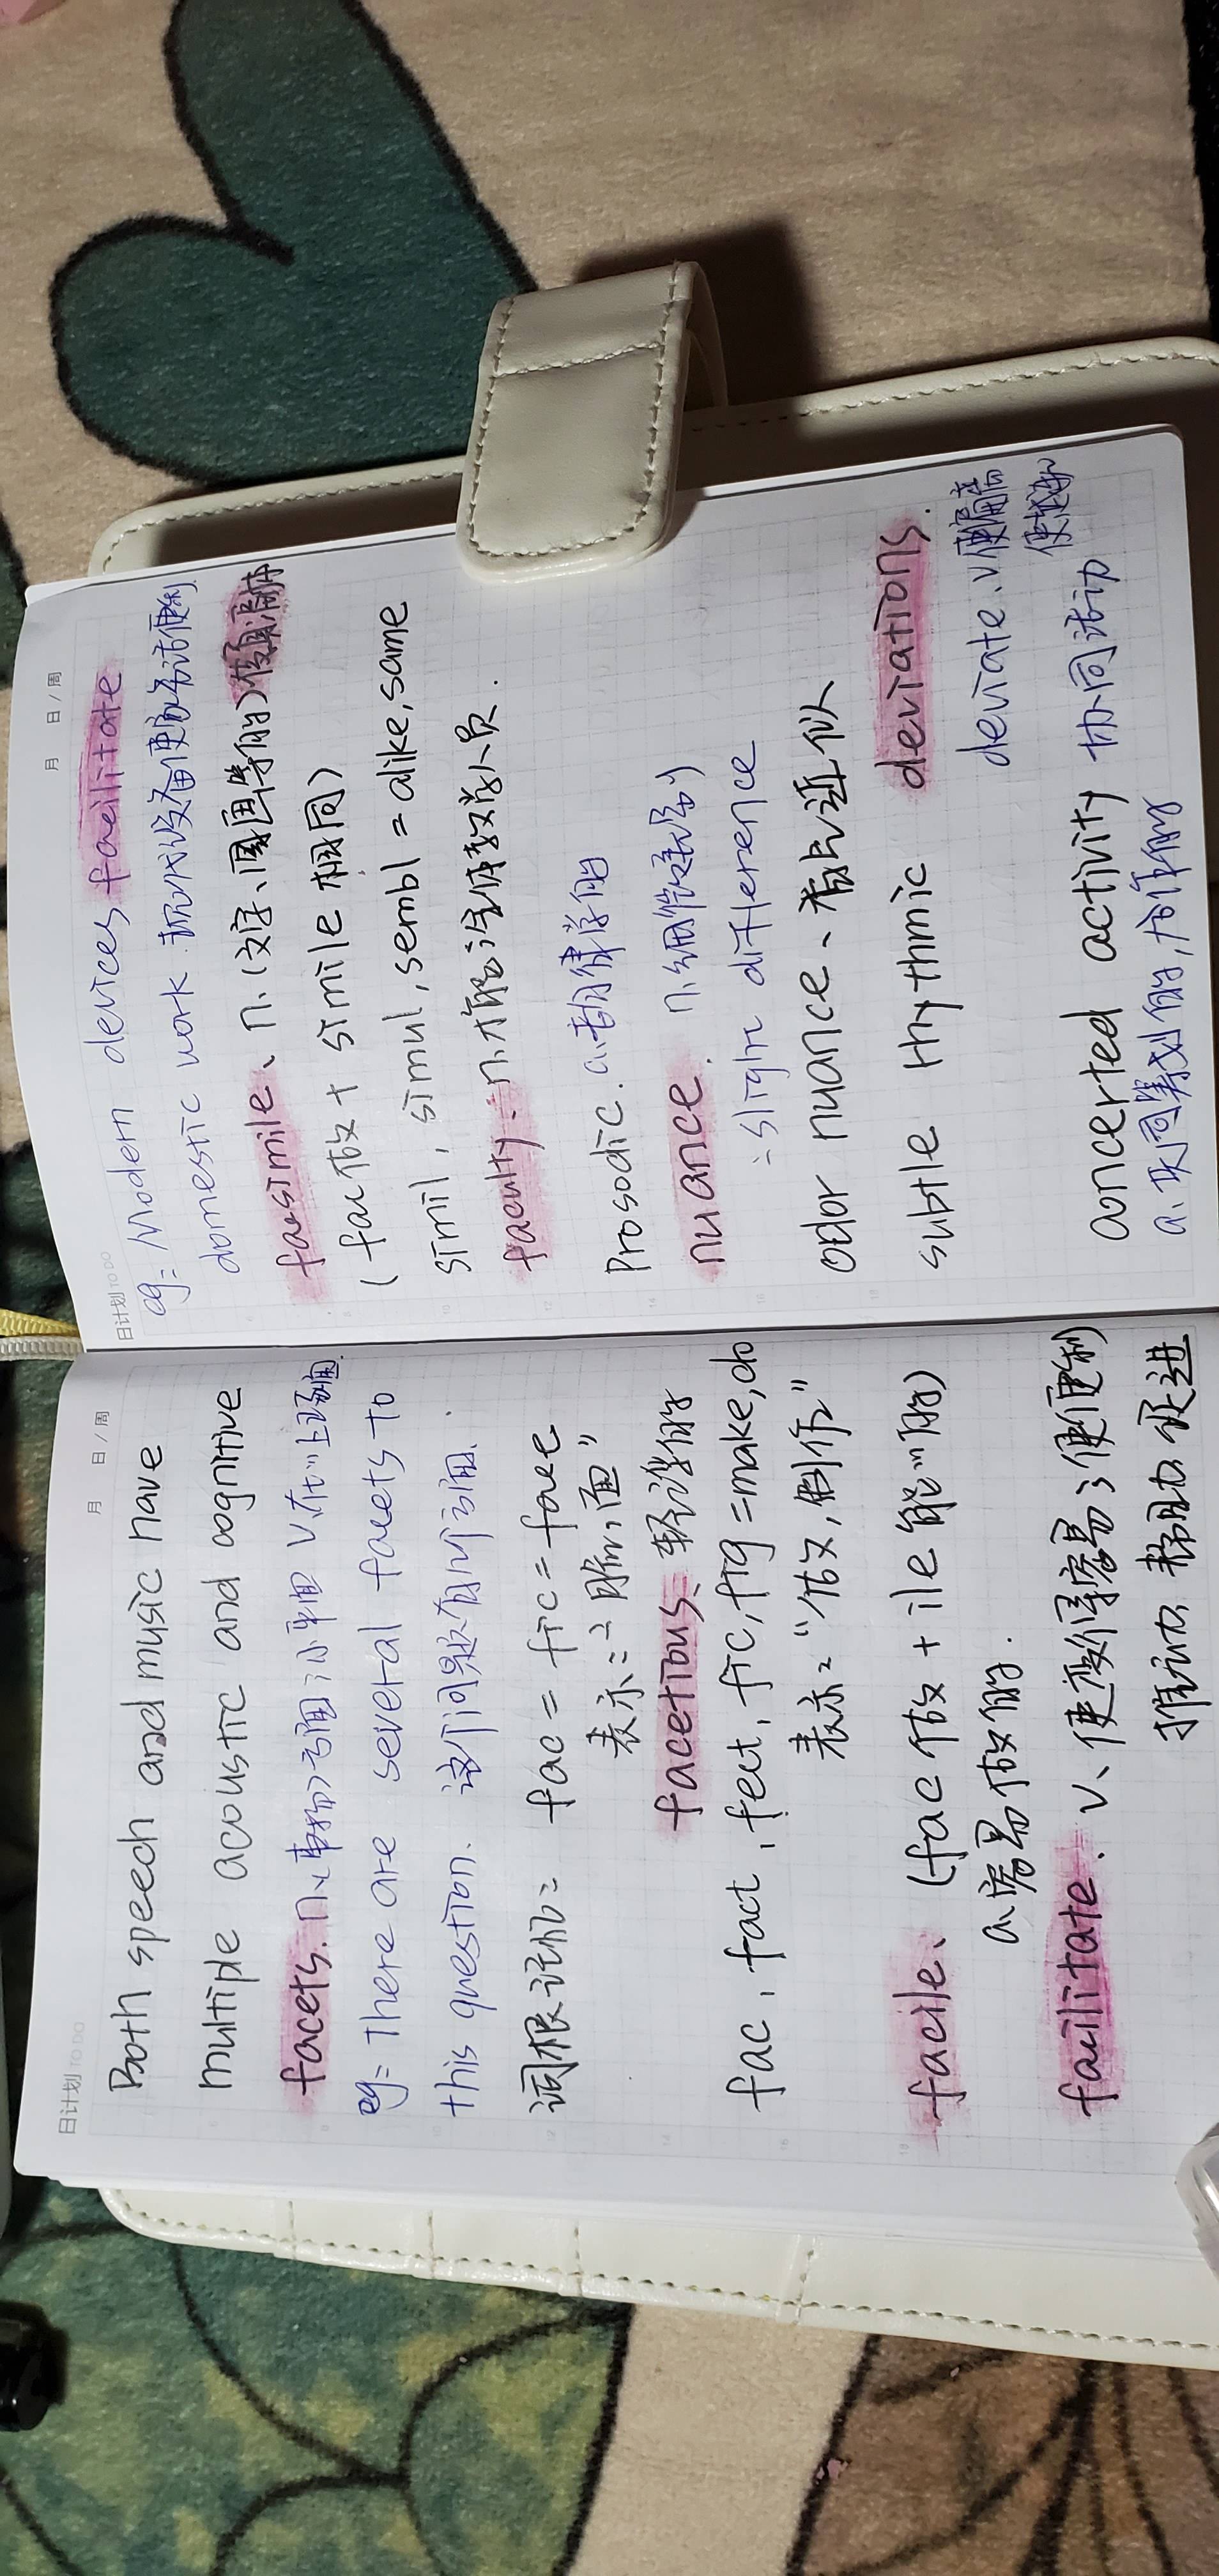 日计划 TO DO 月 日/周
Both speech and music have
multiple acoustic and cognitive
facets. n.(事物)方面;小平面 v.在…上琢面
eg: There are several facets to
this question. 这个问题有几个方面.
词根记忆: fac = fic = face
表示:"脸,面"
facetious、轻浮的
fac, fact, fect, fic, fig = make, do
表示:"做,制作"
facile、(fac 做 + ile 能…的)
a.容易做的.
facilitate. v、使变得容易;使便利
推动 帮助 促进
日计划 TO DO 月 日/周
eg: Modern devices facilitate
domestic work. 现代设备使家务活便利
facsimile、n、(文字、图画等的)
(fac 做 + simile 相同)
simil, simul, sembl = alike, same
faculty. n.才能;全体教学人员.
Prosodic. a.韵律学的
nuance. n.细微差别
: slight difference
odor nuance、香气近似
subtle rhythmic deviations.
deviate. v.使偏离
concerted activity 协同活动
a.共同筹划的,合作的